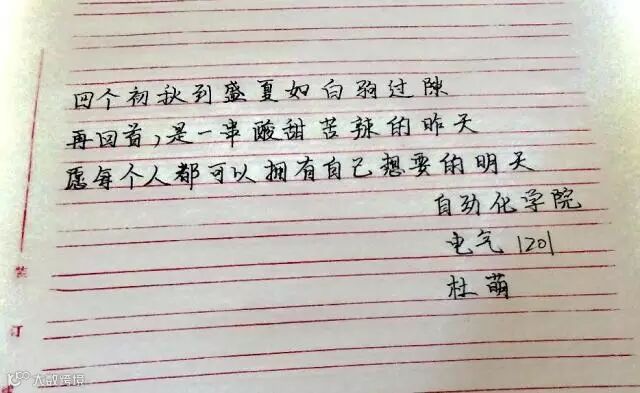 四个初秋到盛夏如白驹过隙
再回首，是一串酸甜苦辣的昨天
愿每个人都可以拥有自己想要的明天
自动化学院
电气1201
杜萌
装
订
大数跨境